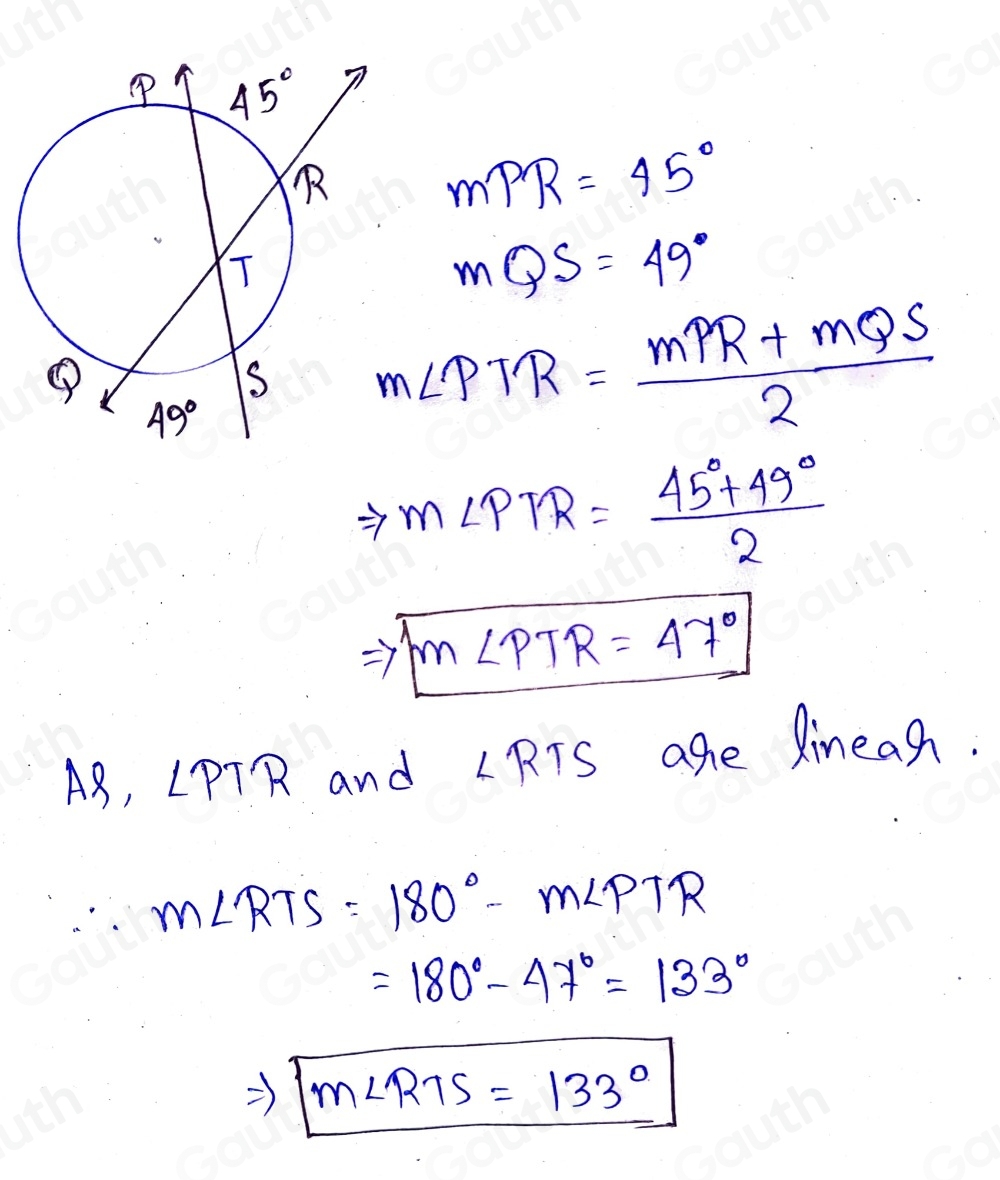 P 45°
R
T
Q 49° S
mPR = 45°
mQS = 49°
m∠PTR = (mPR + mQS)/2
⇒ m∠PTR = (45° + 49°)/2
⇒ m∠PTR = 47°
As, ∠PTR and ∠RTS are linear.
∴ m∠RTS = 180° - m∠PTR
= 180° - 47° = 133°
⇒ m∠RTS = 133°
Gauth